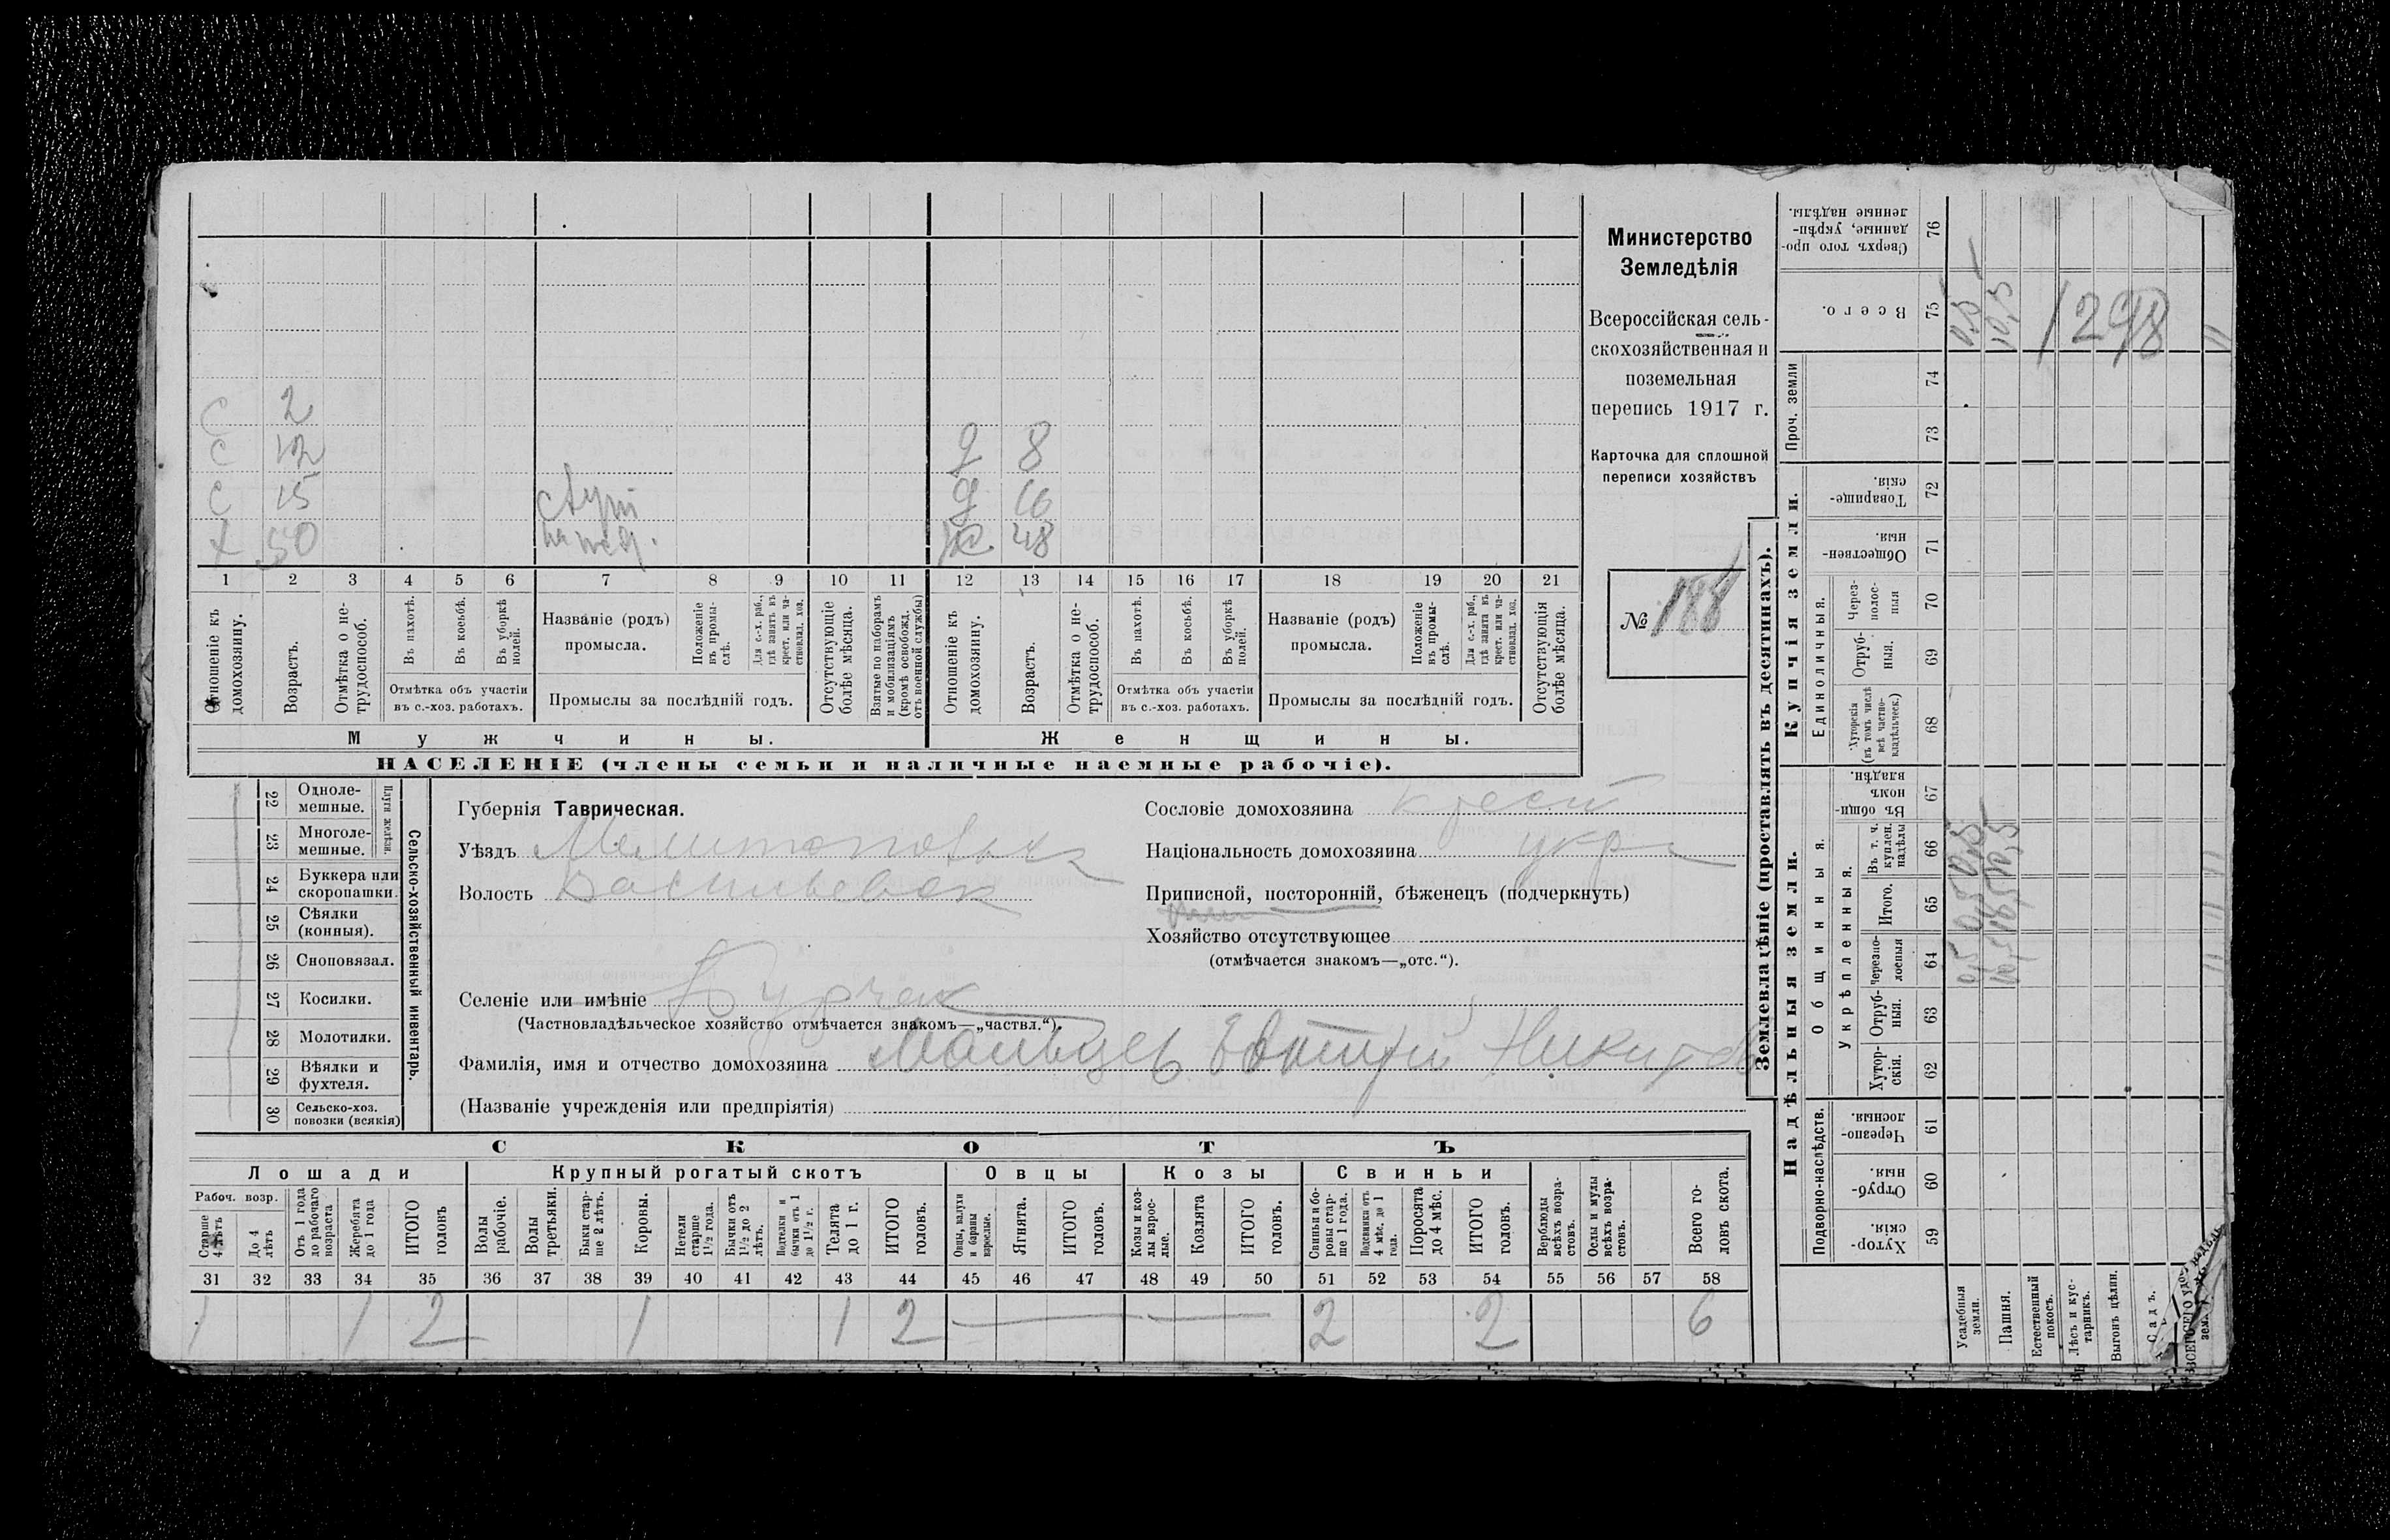 С 2
С 12 д 8
С 15 д 16
Х 50 ж. 48
1 2 3 4 5 6 7 8 9 10 11 12 13 14 15 16 17 18 19 20 21
Отношеніе къ домохозяину.
Возрастъ.
Отмѣтка о нетрудоспособ.
Въ пахотѣ.
Въ косьбѣ.
Въ уборкѣ полей.
Отмѣтка объ участіи
въ с.-хоз. работахъ.
Названіе (родъ)
промысла.
Положеніе въ промыслѣ.
Для с.-х. раб., гдѣ занятъ въ крест. или частновлад. хоз.
Промыслы за послѣдній годъ.
Отсутствующіе болѣе мѣсяца.
Взятые по наборамъ и мобилизаціямъ (кромѣ освобожд. отъ военной службы)
Отношеніе къ домохозяину.
Возрастъ.
Отмѣтка о нетрудоспособ.
Въ пахотѣ.
Въ косьбѣ.
Въ уборкѣ полей.
Отмѣтка объ участіи
въ с.-хоз. работахъ.
Названіе (родъ)
промысла.
Положеніе въ промыслѣ.
Для с.-х. раб., гдѣ занята въ крест. или частновлад. хоз.
Промыслы за послѣдній годъ.
Отсутствующія болѣе мѣсяца.
Мужчины. Женщины.
НАСЕЛЕНІЕ (члены семьи и наличные наемные рабочіе).
Министерство
Земледѣлія
Всероссійская сель-
скохозяйственная и
поземельная
перепись 1917 г.
Карточка для сплошной
переписи хозяйствъ
№ 188
Сельско-хозяйственный инвентарь.
Плуги желѣзн.
22 Одноле-
мешные.
23 Многоле-
мешные.
24 Буккера или
скоропашки.
25 Сѣялки
(конныя).
26 Сноповязал.
27 Косилки.
28 Молотилки.
29 Вѣялки и
фухтеля.
30 Сельско-хоз.
повозки (всякія)
Губернія Таврическая.
Уѣздъ Мелитопольск
Волость Васильевск
Селеніе или имѣніе Бурчак
(Частновладѣльческое хозяйство отмѣчается знакомъ—„частвл.“).
Фамилія, имя и отчество домохозяина Мальцев Евтихій Никитов
(Названіе учрежденія или предпріятія)
Сословіе домохозяина крест
Національность домохозяина укр
Приписной, посторонній, бѣженецъ (подчеркнуть)
Хозяйство отсутствующее
(отмѣчается знакомъ—„отс.“).
СКОТЪ
Лошади Крупный рогатый скотъ Овцы Козы Свиньи
Рабоч. возр.
Старше 4 лѣтъ
До 4 лѣтъ
Отъ 1 года до рабочаго возраста
Жеребята до 1 года
ИТОГО головъ
Волы рабочіе.
Волы третьяки.
Быки старше 2 лѣтъ.
Коровы.
Нетели старше 1½ года.
Бычки отъ 1½ до 2 лѣтъ.
Подтелки и бычки отъ 1 до 1½ г.
Телята до 1 г.
ИТОГО головъ.
Овцы, валухи и бараны взрослые.
Ягнята.
ИТОГО головъ.
Козы и козлы взрослые.
Козлята
ИТОГО головъ.
Свиньи и боровы старше 1 года.
Подсвинки отъ 4 мѣс. до 1 года.
Поросята до 4 мѣс.
ИТОГО головъ.
Верблюды всѣхъ возрастовъ.
Ослы и мулы всѣхъ возрастовъ.
Всего головъ скота.
31 32 33 34 35 36 37 38 39 40 41 42 43 44 45 46 47 48 49 50 51 52 53 54 55 56 57 58
1 1 2 1 1 2 2 2 6
Землевладѣніе (проставлять въ десятинахъ).
Надѣльныя земли. Купчія земли. Проч. земли
Подворно-наслѣдств.
Общинныя.
Укрѣпленныя.
Единоличныя.
59 Хуторскія.
60 Отрубныя.
61 Черезполосныя.
62 Хуторскія.
63 Отрубныя.
64 Черезполосныя
65 Итого.
66 Въ т. ч. куплен. надѣлы
67 Въ общинномъ владѣн.
68 Хуторскія (въ томъ числѣ всѣ частновладѣльческ.)
69 Отрубныя.
70 Черезполосныя
71 Общественныя.
72 Товарищескія.
73
74
75 Всего.
76 Сверхъ того проданные, укрѣпленные надѣлы.
Усадебныя земли. 0,5 0,5 0,5 0,5
Пашня. 10,5 10,5 10,5 10,5
Естественный покосъ.
Лѣсъ и кустарникъ.
Выгонъ цѣлин.
Садъ.
1298
11 11 11 11